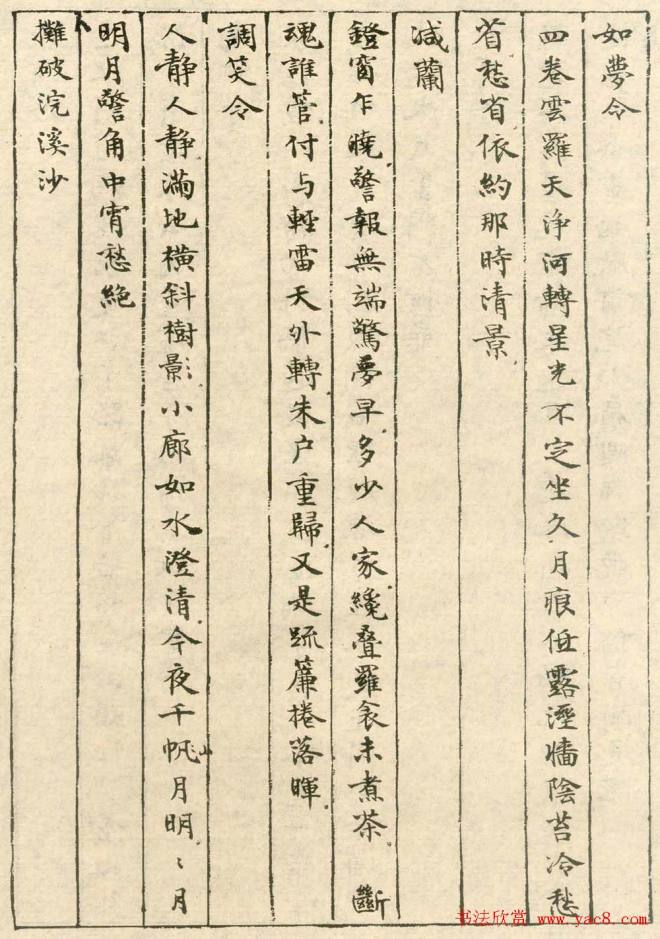 如夢令
四卷雲羅天浄河轉星光不定坐久月痕低露溼牆陰苔冷愁
省愁省依約那時清景
減蘭
鐙窗乍曉警報無端驚夢早多少人家纔疊羅衾未煮茶 斷
魂誰管付与輕雷天外轉朱户重歸又是疏簾捲落暉
調笑令
人静人静滿地橫斜樹影小廊如水澄清今夜千帆山月明〻月
明月警角中宵愁絶
攤破浣溪沙
书法欣赏 www.yac8.com